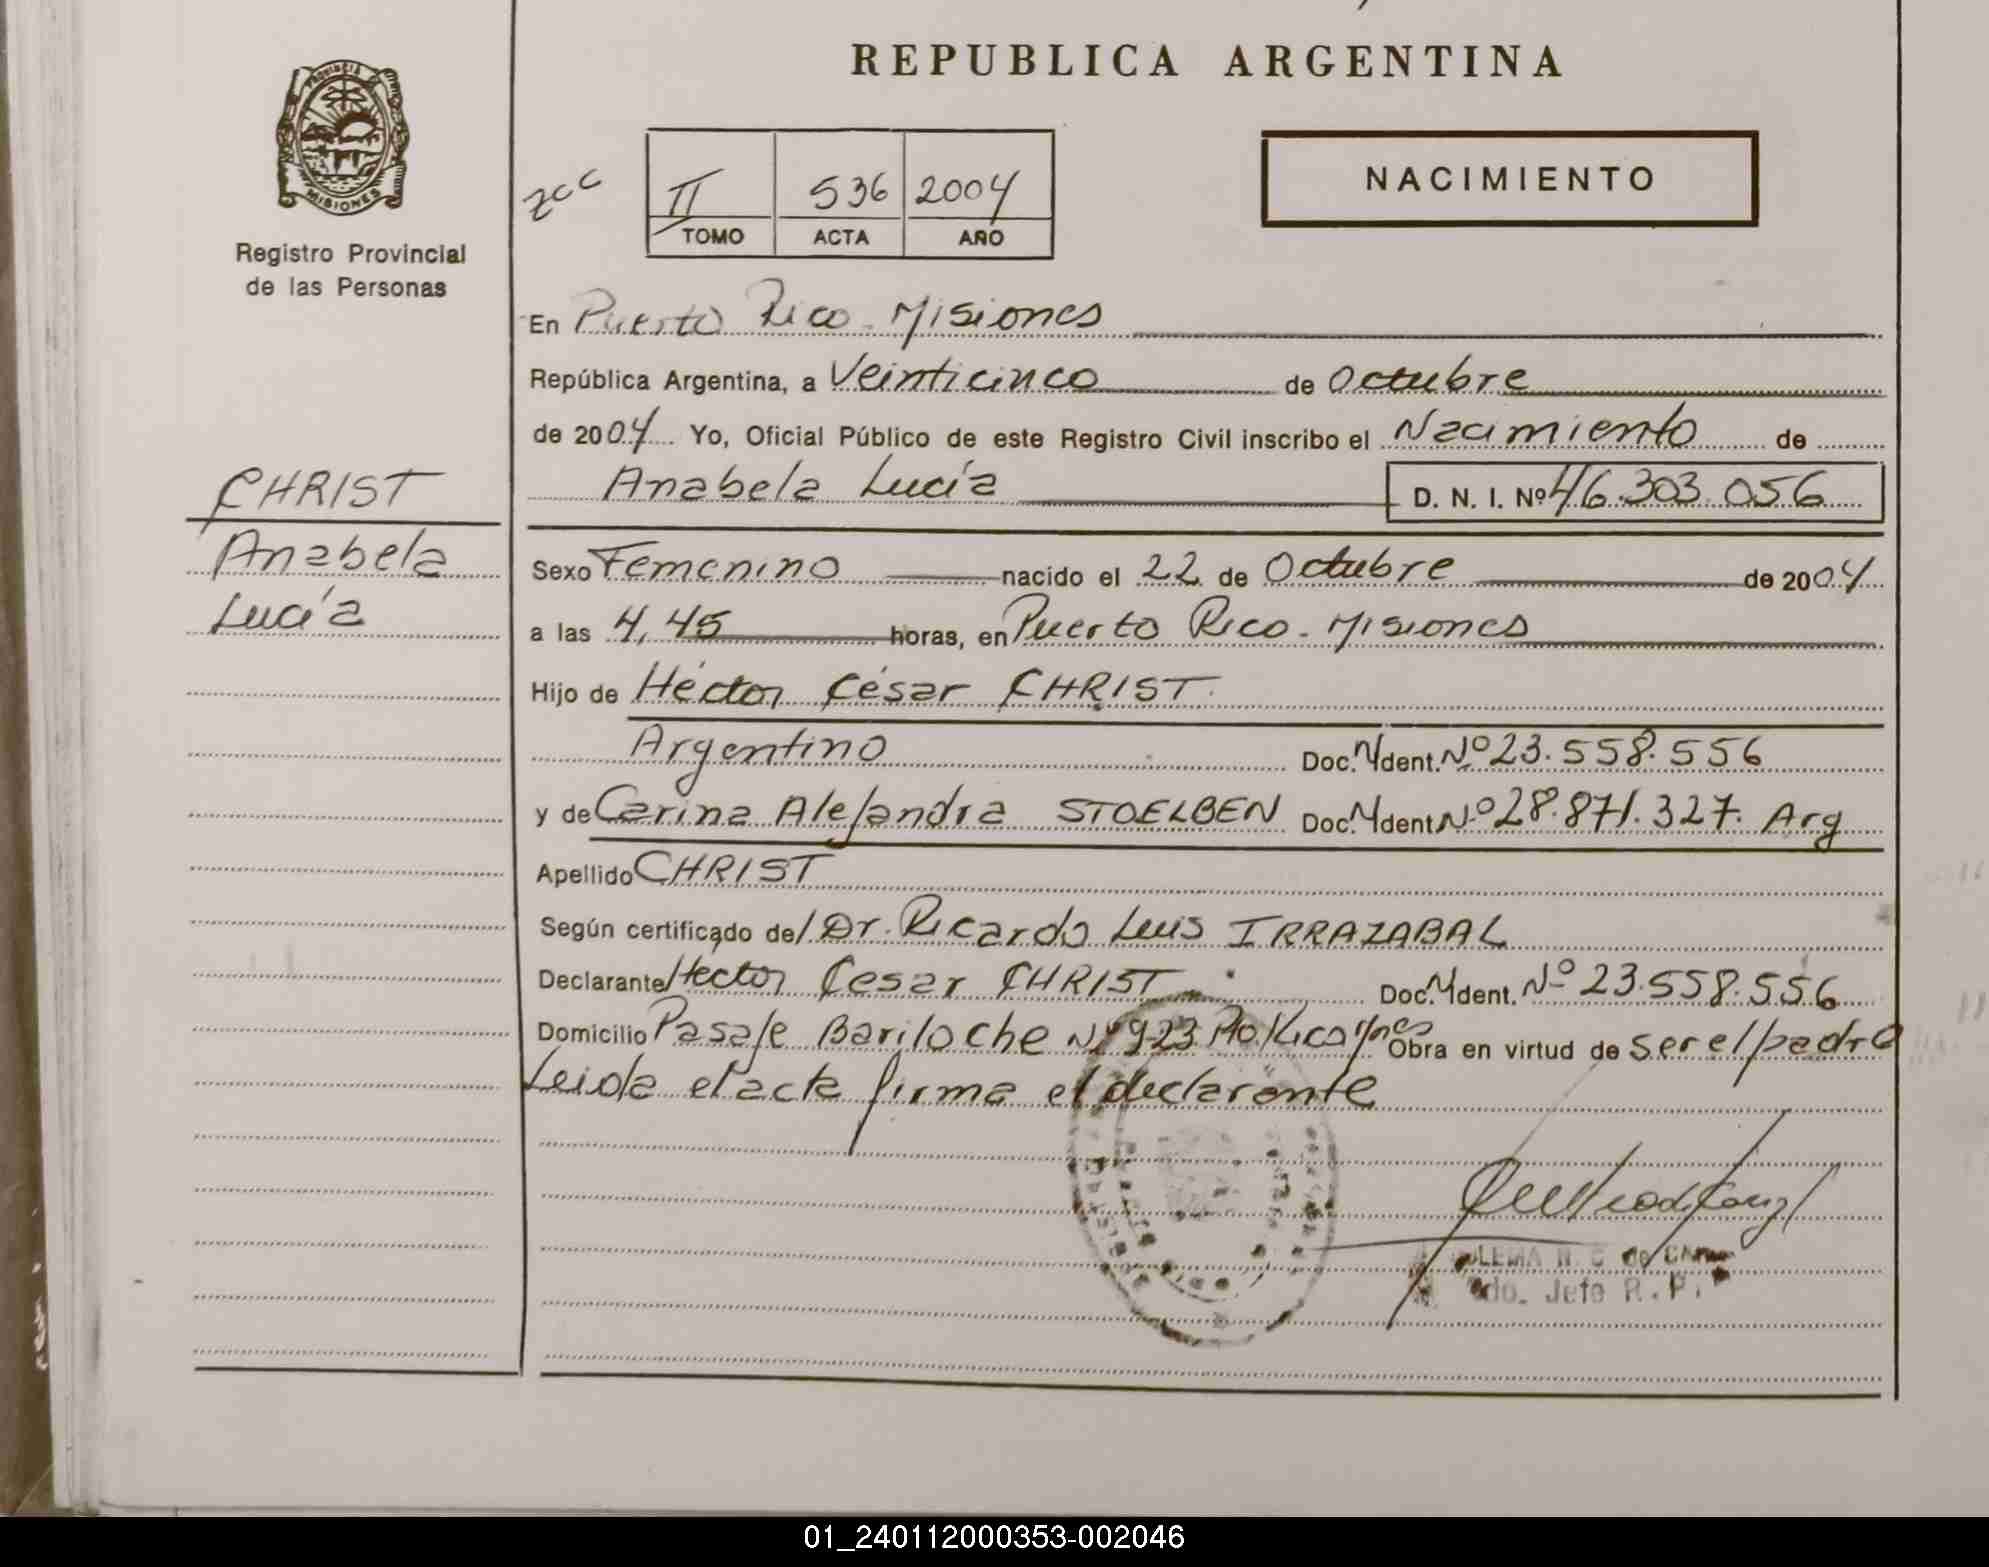 REPUBLICA ARGENTINA
PROVINCIA
MISIONES
Registro Provincial
de las Personas
II 536 2004
TOMO ACTA AÑO
NACIMIENTO
En Puerto Rico - Misiones
República Argentina, a Veinticinco de Octubre
de 2004 Yo, Oficial Público de este Registro Civil inscribo el Nacimiento de
Anabela Lucía D. N. I. Nº 46.303.056
CHRIST
Anabela
Lucía
Sexo Femenino nacido el 22 de Octubre de 2004
a las 4,45 horas, en Puerto Rico - Misiones
Hijo de Héctor César CHRIST
Argentino Doc. Ident. Nº 23.558.556
y de Carina Alejandra STOELBEN Doc. Ident. Nº 28.871.327. Arg
Apellido CHRIST
Según certificado del Dr. Ricardo Luis IRRAZABAL
Declarante Héctor César CHRIST Doc. Ident. Nº 23.558.556
Domicilio Pasaje Bariloche Nº 923 Pto. Rico Mnes Obra en virtud de ser el padre
Leida el acta firma el declarante
de
Jefe R. P.
01_240112000353-002046